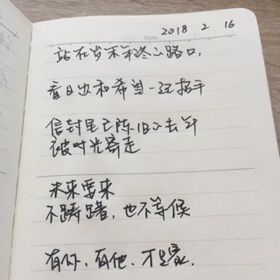 2018 2 16
站在岁末年终的路口,
看日出和希望一起招手
信封是已陈旧的去年
被时光寄走
未来要来
不踌躇,也不等候
有你、有他、才是家.